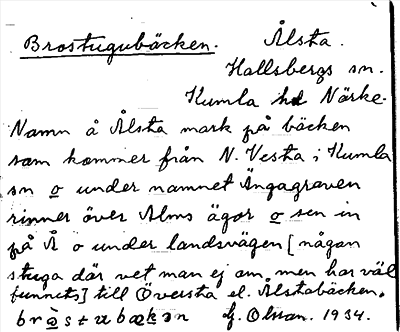 Brostugubäcken. Ålsta.
Hallsbergs sn.
Kumla hd Närke.
Namn å Ålsta mark på bäcken
som kommer från N. Vesta i Kumla
sn o under namnet Ängagraven
rinner över Alms ägor o sen in
på Å o under landsvägen [någon
stuga där vet man ej om men har väl
funnits] till Översta el. Ålstabäcken.
Olsson. 1934.